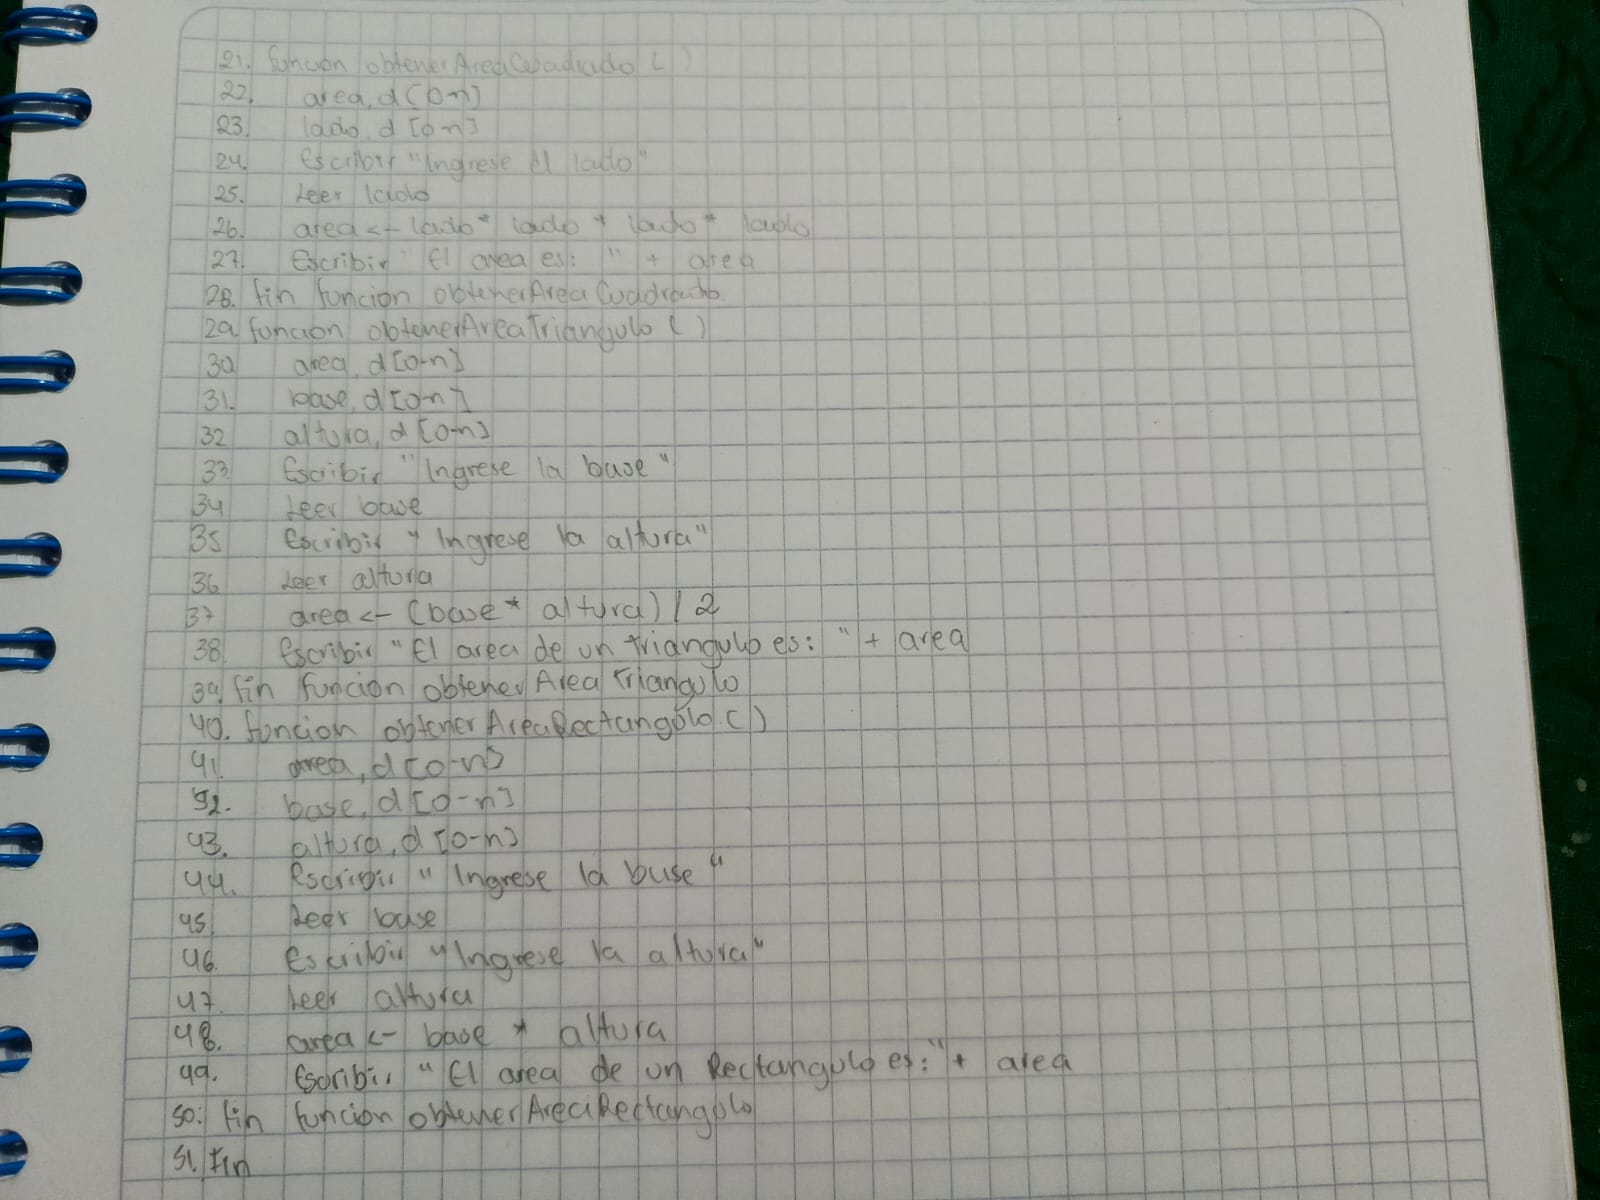 21. funcion obtenerAreaCuadrado ( )
22. area, d [0-n]
23. lado, d [0-n]
24. Escribir "Ingrese el lado"
25. Leer lado
26. area <- lado * lado * lado * lado
27. Escribir "El area es: " + area
28. fin funcion obtenerAreaCuadrado
29. funcion obtenerAreaTriangulo ( )
30 area, d [0-n]
31. base, d [0-n]
32 altura, d [0-n]
33 Escribir "Ingrese la base"
34 Leer base
35 Escribir "Ingrese la altura"
36 Leer altura
37 area <- (base * altura) / 2
38 Escribir "El area de un triangulo es: " + area
39. fin funcion obtenerArea triangulo
40. funcion obtenerAreaRectangulo ( )
41. area, d [0-n]
42. base, d [0-n]
43. altura, d [0-n]
44. Escribir "Ingrese la base"
45 Leer base
46 Escribir "Ingrese la altura"
47. Leer altura
48. area <- base * altura
49. Escribir "El area de un Rectangulo es:" + area
50. fin funcion obtenerAreaRectangulo
51. Fin